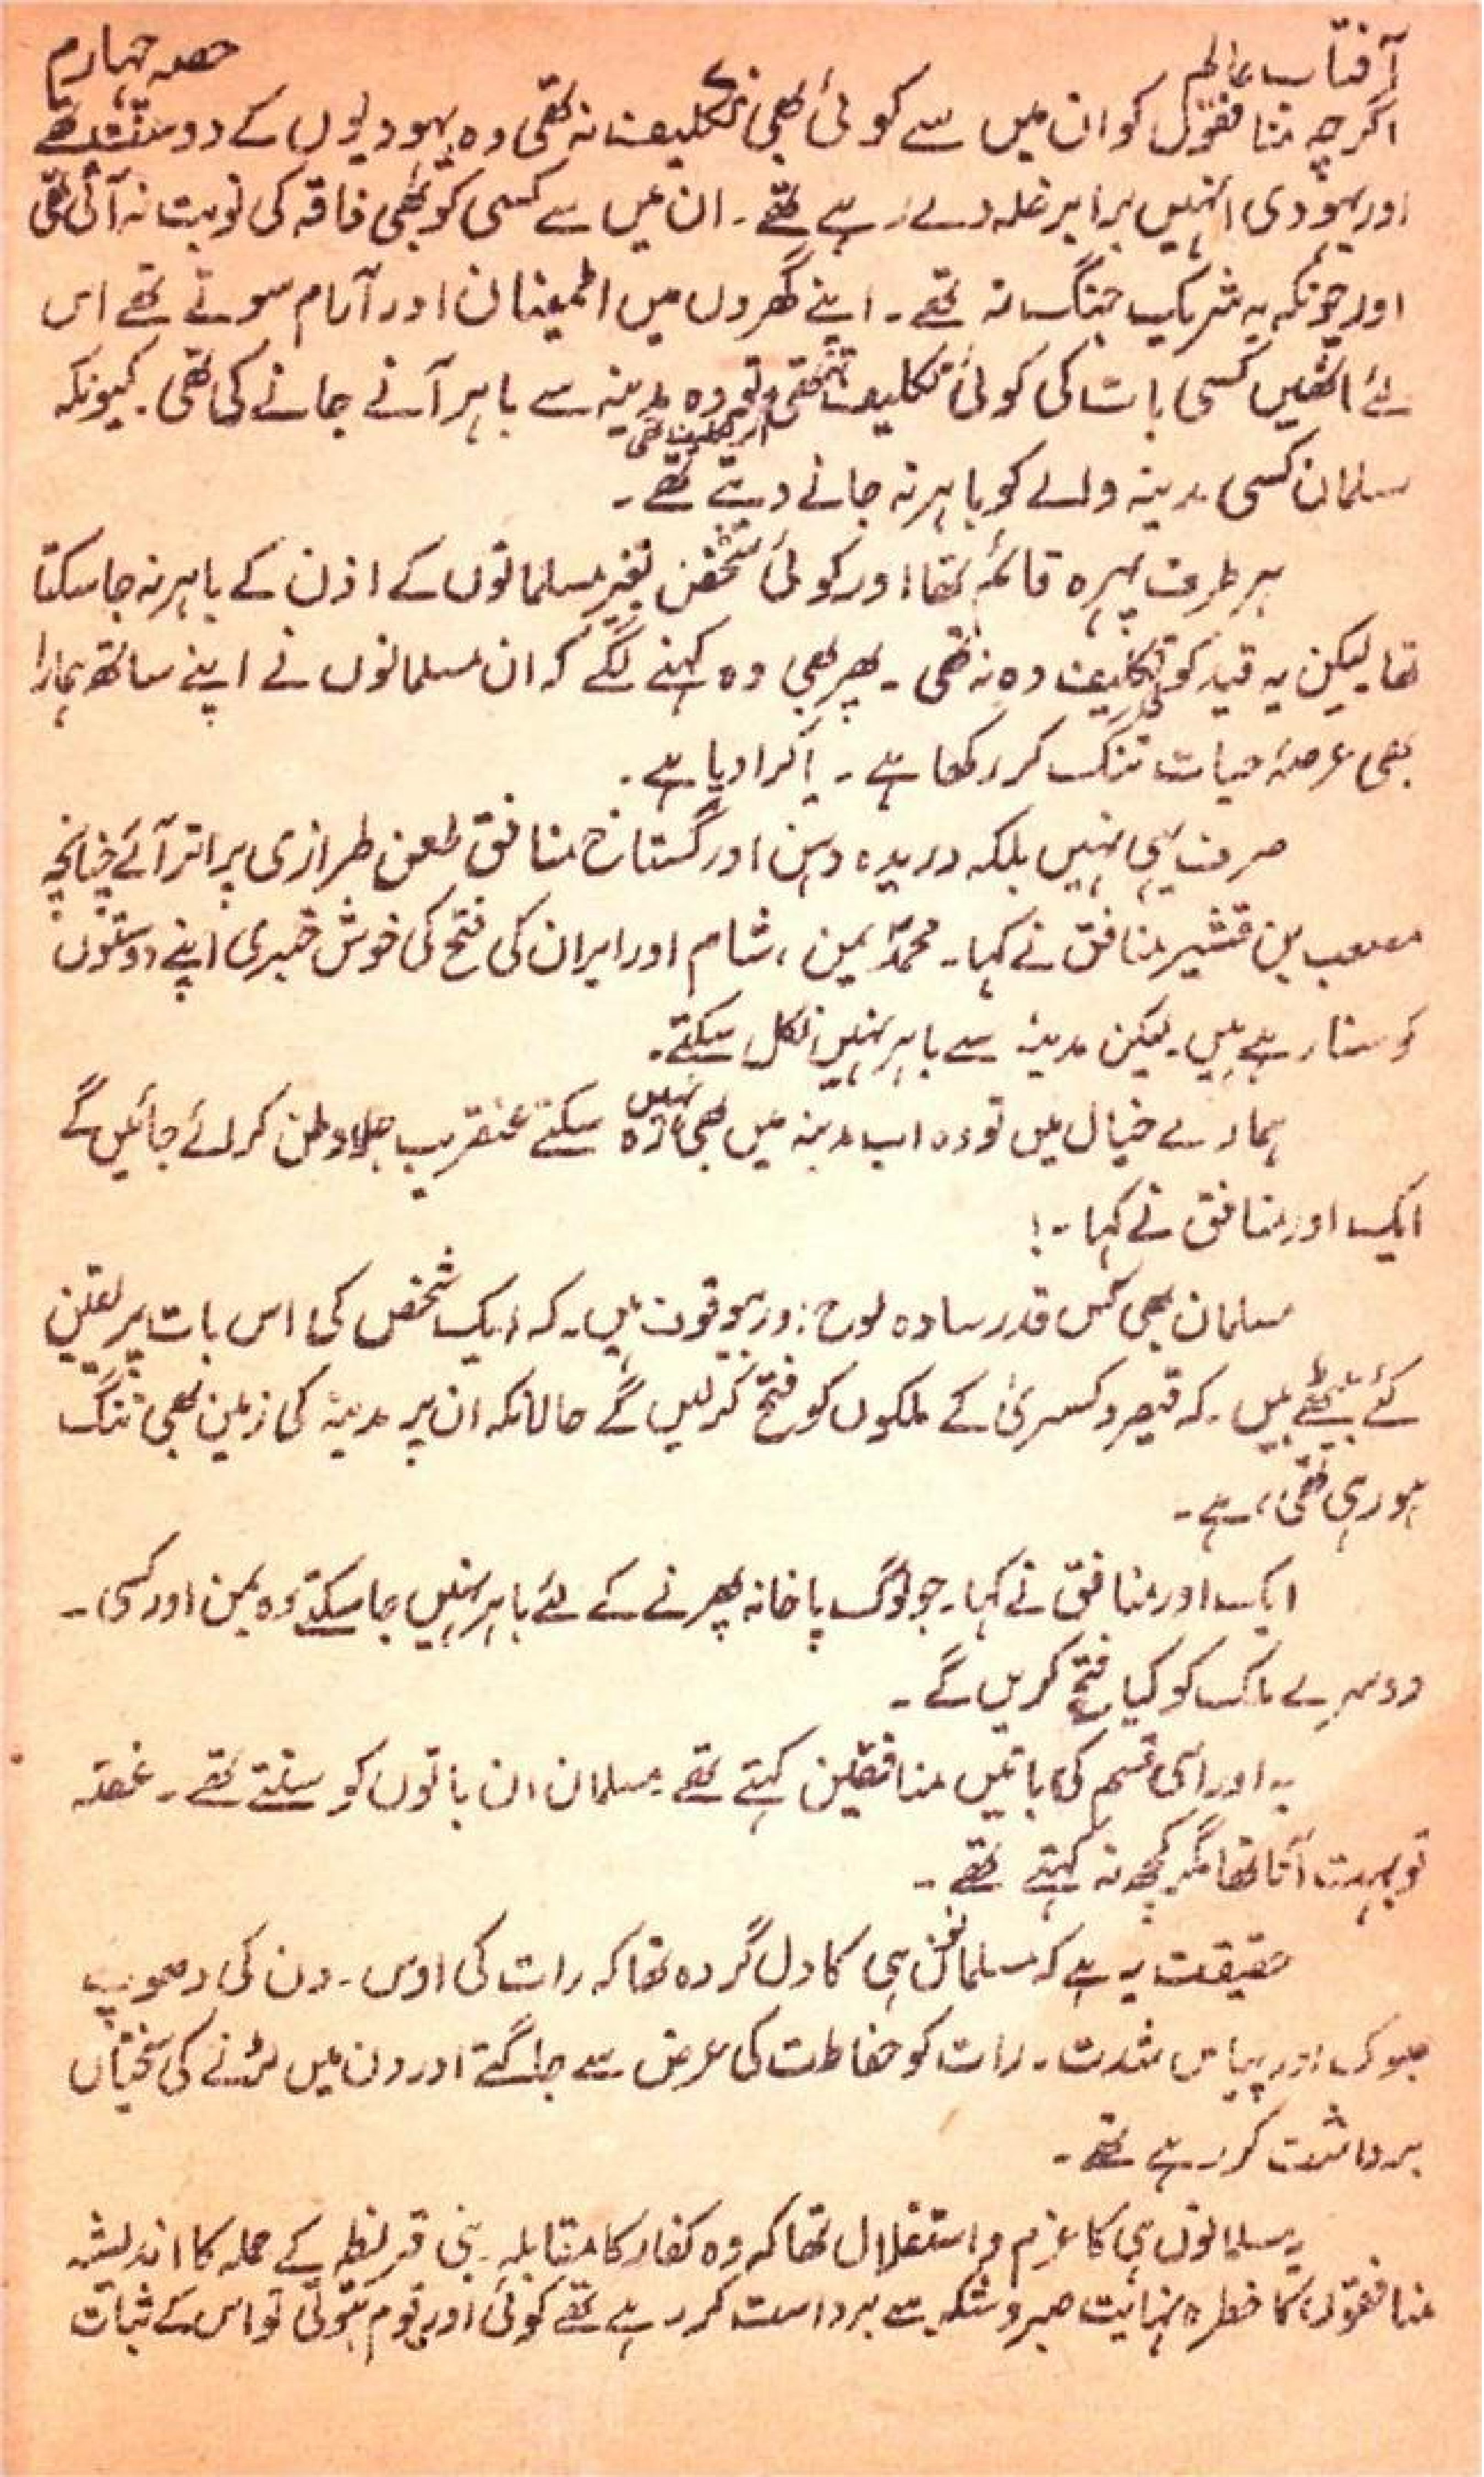 آفتاب عالم
حصہ چہارم
اگرچہ منافقوں کو ان میں سے کوئی بھی تکلیف نہ تھی وہ یہودیوں کے دوست تھے
اور یہودی انہیں برابر غلہ دے رہے تھے۔ ان میں سے کسی کو بھی فاقہ کی نوبت نہ آئی تھی
اور چونکہ یہ شریک جنگ نہ تھے۔ اپنے گھروں میں اطمینان اور آرام سوتے تھے اس
لئے انھیں کسی بات کی کوئی تکلیف نہ تھی اگر تکلیف تھی تو وہ مدینہ سے باہر آنے جانے کی تھی۔ کیونکہ
مسلمان کسی مدینہ والے کو باہر نہ جانے دیتے تھے۔
ہر طرف پہرہ قائم تھا اور کوئی شخص بغیر مسلمانوں کے اذن کے باہر نہ جا سکتا
تھا لیکن یہ قید کوئی تکلیف دہ نہ تھی۔ پھر بھی وہ کہنے لگے کہ ان مسلمانوں نے اپنے ساتھ ہمارا
بھی عرصۂ حیات تنگ کر رکھا ہے۔ یا کرا دیا ہے۔
صرف یہی نہیں بلکہ دریدہ دہن اور گستاخ منافق طعن طرازی پر اتر آئے چنانچہ
معصب بن قشیر منافق نے کہا۔ محمدؐ یمن، شام اور ایران کی فتح کی خوش خبری اپنے دوستوں
کو سنا رہے ہیں۔ لیکن مدینہ سے باہر نہیں نکل سکتے۔
ہمارے خیال میں تو وہ اب مدینہ میں بھی نہیں رہ سکتے عنقریب جلاوطن کر لئے جائیں گے
ایک اور منافق نے کہا۔!
مسلمان بھی کس قدر سادہ لوح اور بیوقوف ہیں۔ کہ ایک شخص کی اس بات پر یقین
کئے بیٹھے ہیں۔ کہ قیصر و کسریٰ کے ملکوں کو فتح کر لیں گے حالانکہ ان پر مدینہ کی زمین بھی تنگ
ہو رہی تھی، ہے۔
ایک اور منافق نے کہا۔ جو لوگ پاخانہ پھرنے کے لئے باہر نہیں جا سکتے وہ یمن اور کسی۔
دوسرے ملک کو کیا فتح کریں گے۔
یہ اور اسی قسم کی باتیں منافقین کہتے تھے مسلمان ان باتوں کو سنتے تھے۔ غصہ
تو بہت آتا تھا مگر کچھ نہ کہتے تھے۔
حقیقت یہ ہے کہ مسلمانوں ہی کا دل گردہ تھا کہ رات کی اوس۔ دن کی دھوپ
بھوک اور پیاس شدت۔ رات کو حفاظت کی غرض سے جاگتے اور دن میں لڑنے کی سختیاں
برداشت کر رہے تھے۔
یہ مسلمانوں ہی کا عزم و استقلال تھا کہ وہ کفار کا مقابلہ۔ بنی قریظہ کے حملہ کا اندیشہ
منافقوں کا خطرہ نہایت صبر و شکر سے برداشت کر رہے تھے کوئی اور قوم ہوتی تو اس کے ثبات